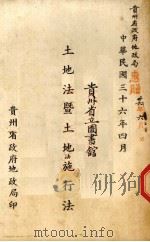 貴州省政府地政局
惠贈
中華民國三十六年四月
貴州省立圖書館
土地法暨土地法施行法
貴州省政府地政局印